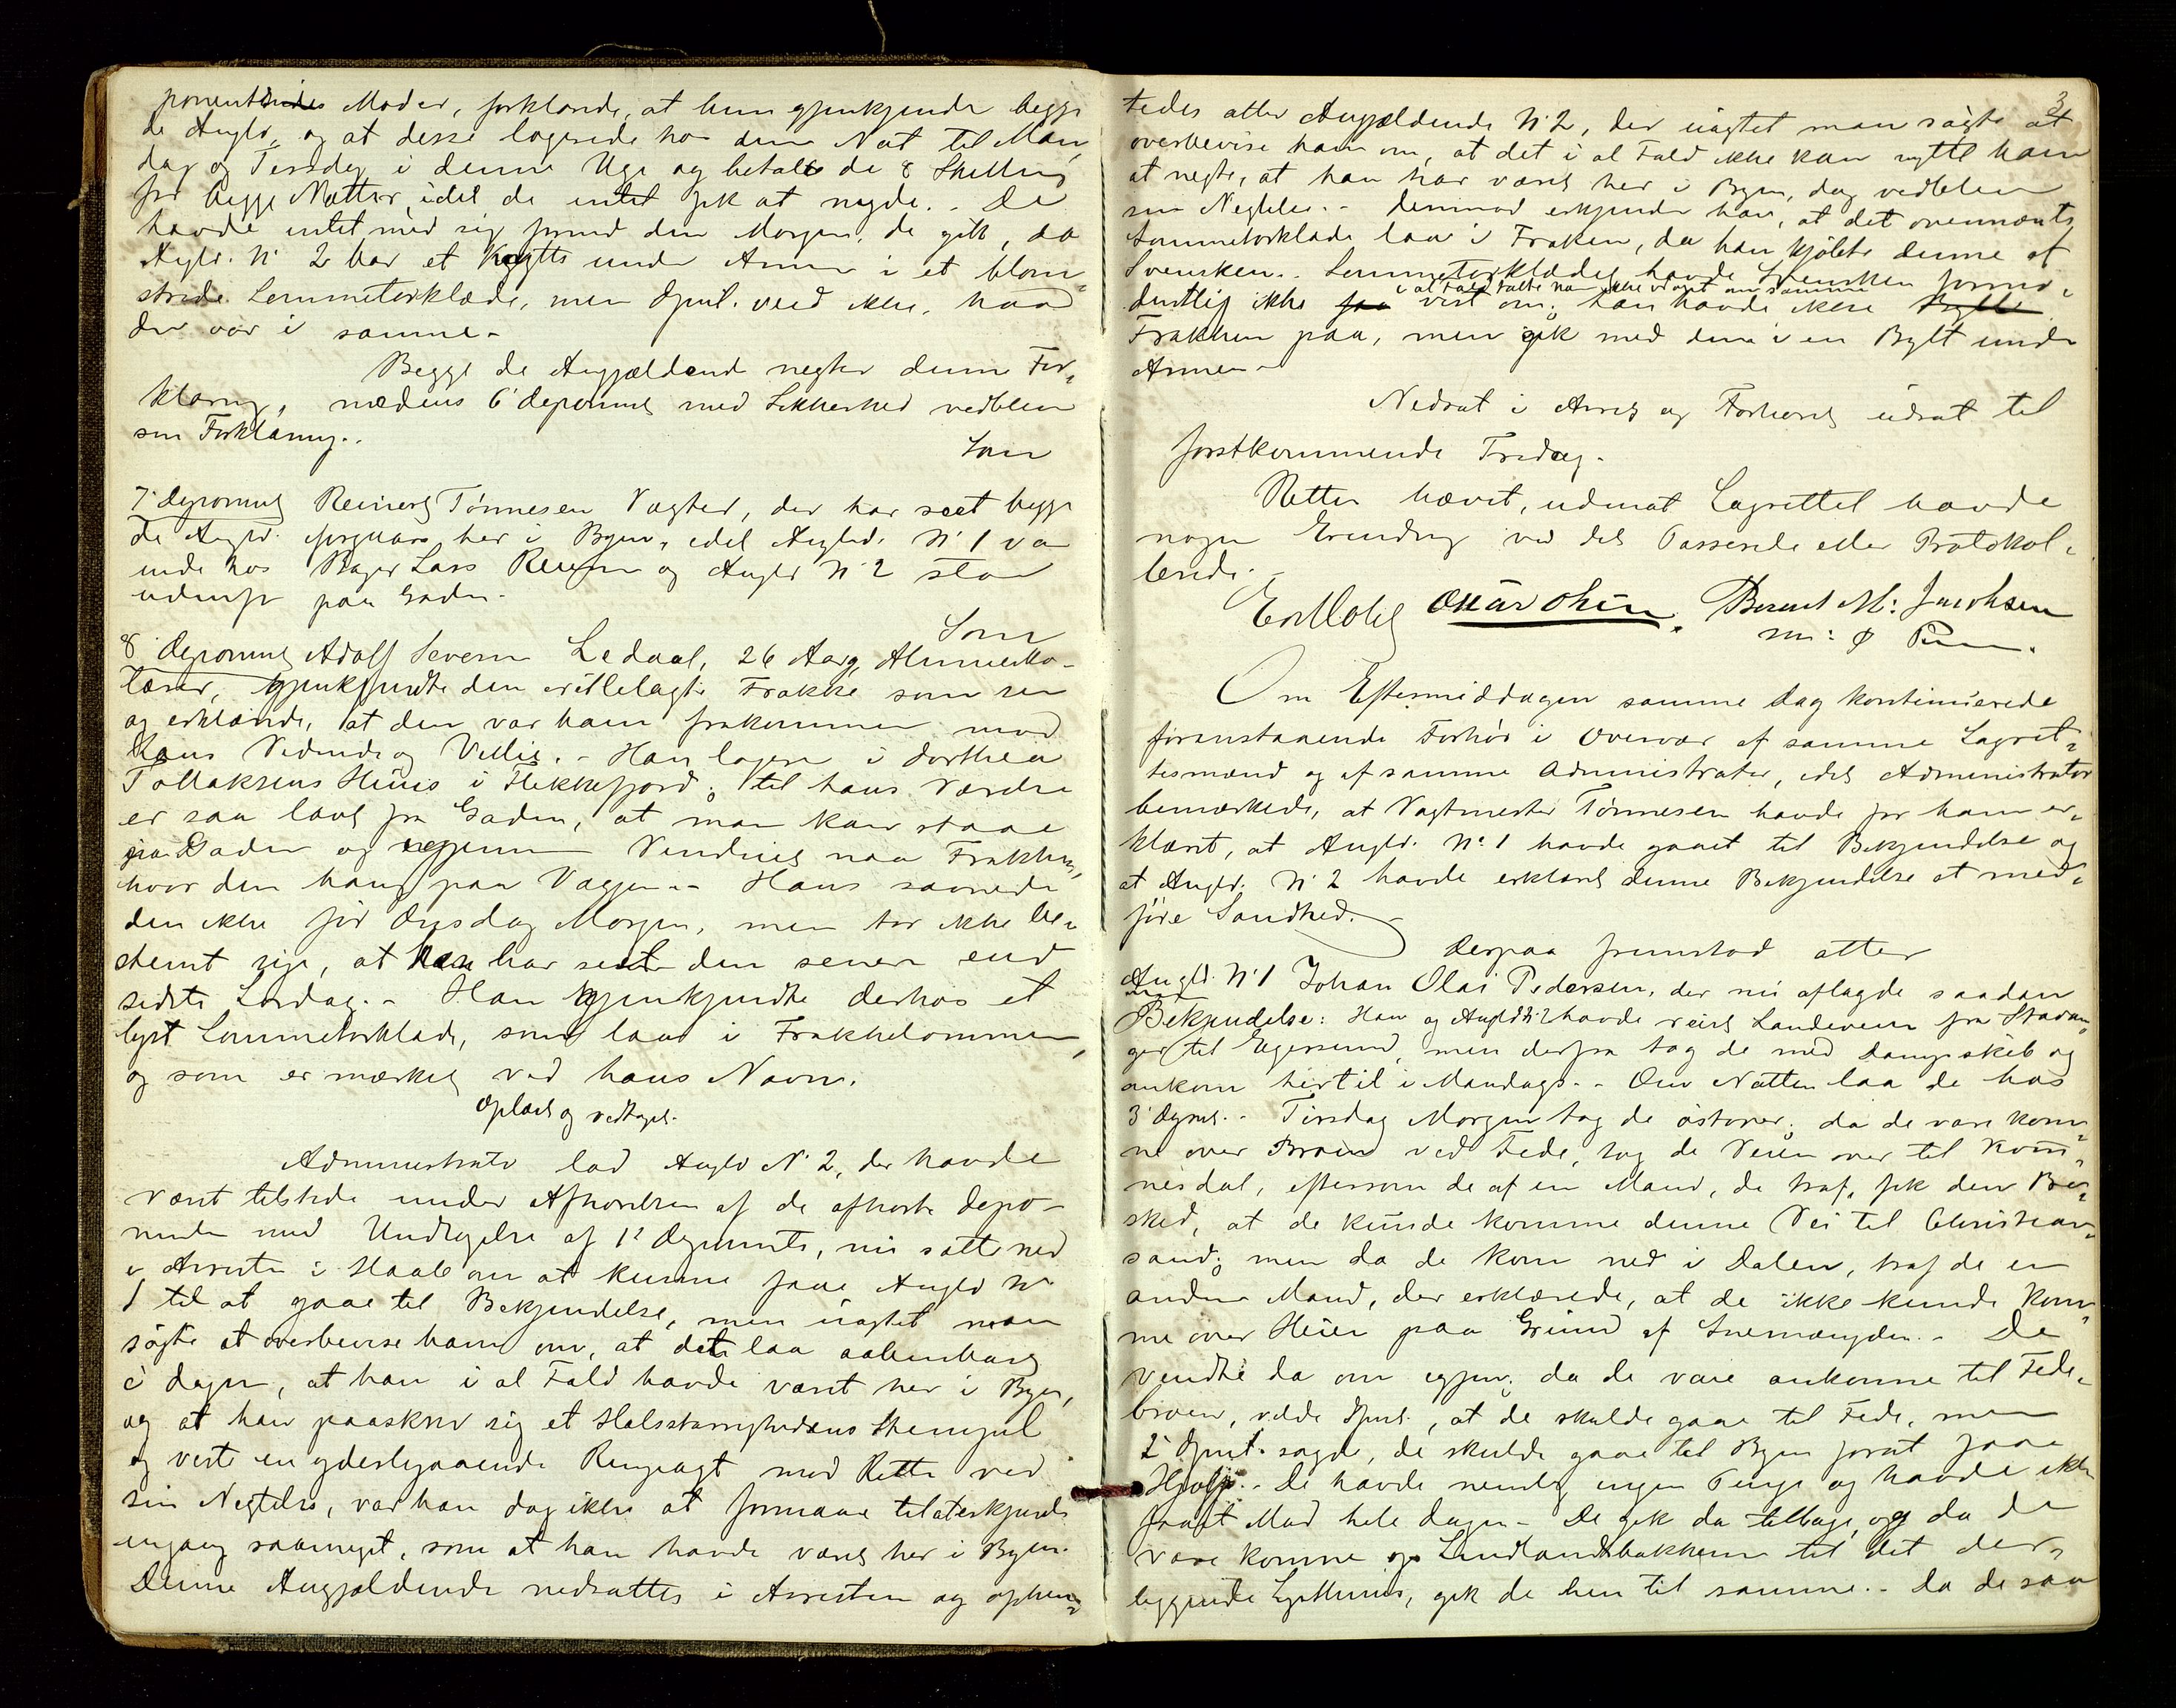 ponentindes Moder, forklarede, at hun gjenkjendte begge
de Angld., og at disse logerede hos dem Nat til Man„
dag og Tirsdag i denne Uge og betalte de 8 Skilling
for begge Nætter, idet de intet fik at nyde. - De
havde intet med sig forend den Morgen, de gik, da
Angld. No 2 bar et Knytte under Armen i et blom„
stret Lommetørklæde, men Dpnt. veed ikke, hvad
der var i samme. -
Begge de Angjældende negter denne For„
klaring, medens 6' deponent med Sikkerhed vedblev
sin Forklaring. -
Som
7' deponent Reinert Tønnesen Vægter, der har seet begge
de Angld. forgaars her i Byen, idet Angld. No 1 var
inde hos Bager Lars Reiersen og Angld No 2 stod
udenfor paa Gaden. -
Som
8' deponent Adolf Severin Ledaal, 26 Aar, Almuesko-
lærer, gjenkjendte den crittelagte Frakke som sin
og erklærede, at den var ham frakommen mod
hans Vidende og Villie. - Han logerer i Dorthea
Tollaksens Huus i Flekkefjord; til hans Værelse
er saa lavt fra Gaden, at man kan staae
paa Gaden og igjennem Vinduet naa Frakken,
hvor den hang paa Væggen. - Hans savnede
den ikke før Onsdag Morgen, men tør ikke be„
stemt sige, at han har seet den senere end
sidste Lørdag. - Han gjenkjendte derhos et
lyst Lommetørklæde, som laa i Frakkelommen,
og som er mærket ved hans Navn.
Oplæst og vedtaget.
Administrator lod Angld No 2, der havde
været tilstede under Afhørelsen af de afhørte depo-
nenter med Undtagelse af 1' Deponents, nu sætte ned
i Arresten i Haab om at kunne faae Angld No
1 til at gaae til Bekjendelse, men uagtet man
søgte at overbevise ham om, at det laa aabenbart
i dagen, at han i al Fald havde været her i Byen,
og at han paaskrev sig et Halsstarrighedens Stempel
og viste en yderligaaende Ringeagt mod Retten ved
sin Negtelse, var han dog ikke at formaae til at erkjende
engang saameget, som at han havde været her i Byen.
Denne Angjældende nedsattes i Arresten og ophen„
3
tedes atter Angjældende No 2, der uagtet man søgte at
overbevise ham om, at det i al Fald ikke kan nytte ham
at negte, at han har været her i Byen, dog vedblev
sin Negtelse. - Derimod erkjender han, at det ovennævnte
Lommetørklæde laa i Frakken, da han kjøbte denne af
Svensken. - Lommetørklædet havde Svensken formo„
i al Fald talte han ikke videre om samme
dentlig ikke vist om; han havde ikke
Frakken paa, men gik med den i en Bylt under
Armen. -
Nedsat i Arrest og Forhøret udsat til
førstkommende Fredag.
Retten hævet, udenat Lagrettet havde
nogen Erindring ved det Passerede eller Protokol„
lerede. -
Bernt M: Jacobsen
m: ø Pen.
Om Eftermiddagen samme Dag kontinuerede
foranstaaende Forhør i Overvær af samme Lagret„
tesmænd og af samme Administrator, idet Administrator
bemærkede, at Vagtmester Tønnesen havde for ham er„
klæret, at Angld. No 1 havde gaaet til Bekjendelse og
at Angld. No 2 havde erklæret denne Bekjendelse at med„
føre Sandhed. -
Derpaa fremstod atter
Angld. No 1 Johan Olai Pedersen, der nu aflagde saadan
Bekjendelse: Han og Angld No 2 havde reist Landeveien fra Stavan„
ger til Egersund, men derfra tog de med Dampskib og
ankom hertil i Mandags. - Om Natten laa de hos
3' Dpnt. - Tirsdag Morgen tog de østover; da de vare kom„
ne over Broen ved Fede, tog de Veien over til Kvin„
nesdal, eftersom de af en Mand, de traf, fik den Be„
sked, at de kunde komme denne Vei til Christian„
sand; men da de kom ned i Dalen, traf de en
anden Mand, der erklærede, at de ikke kunde kom„
me over Heien paa Grund af Snemængden. - De
vendte da om igjen; da de vare ankomne til Fede„
broen, vilde Dpnt., at de skulde gaae til Fede, men
2' Dpnt. sagde, de skulde gaae til Byen forat faae
Hjælp. - De havde nemlig ingen Penge og havde ikke
faaet Mad hele Dagen. - De gik da tilbage, og da de
vare komne op Lindlandsbakkerne til det der„
liggende Lysthuus, gik de hen til samme. - Da de saa